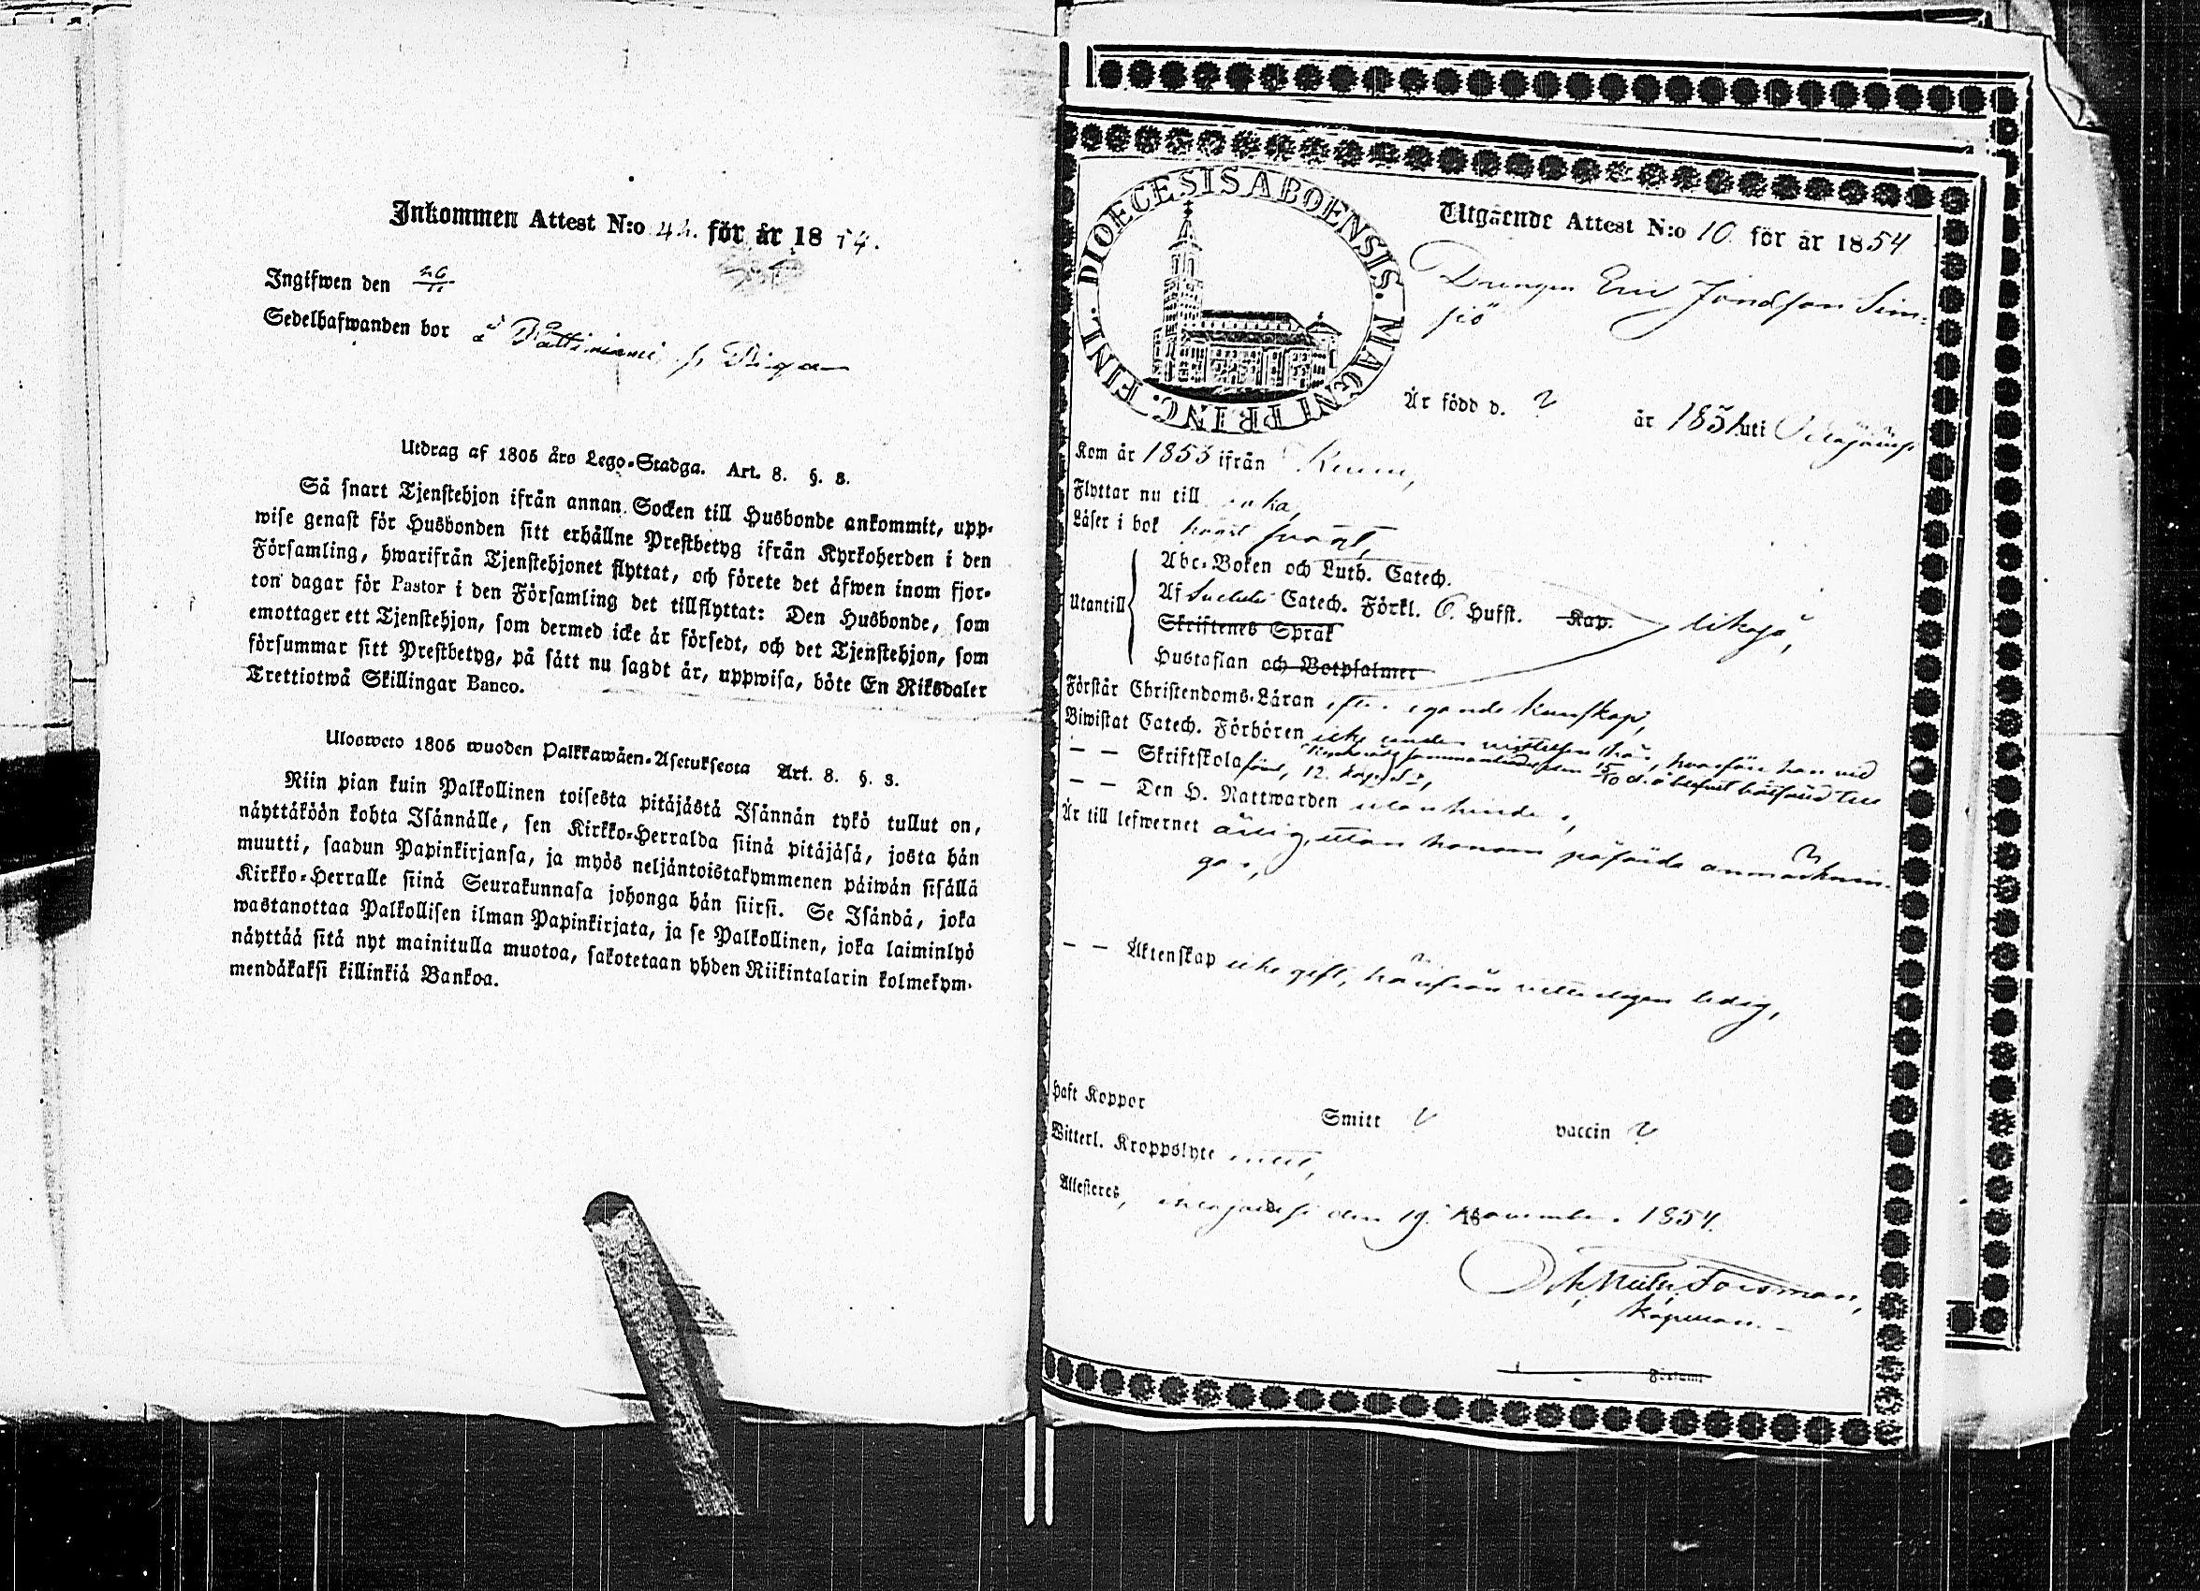 Inkommen Attest N:o 42. för år 1854.
Ingifwen den 26/11
Sedelhafwanden bor å
Utdrag af 1805 års Lego-Stadga. Art. 8. §. 3.
Så snart Tjenstehjon ifrån annan Socken till Husbonde ankommit, upp-
wise genast för Husbonden sitt erhållne Prestbetyg ifrån Kyrkoherden i den
Församling, hwarifrån Tjenstehjonet flyttat, och förete det åfwen inom fjor-
ton dagar för Pastor i den Församling det tillflyttat: Den Husbonde, som
emottager ett Tjenstehjon, som dermed icke år försedt, och det Tjenstehjon, som
försummar sitt Prestbetyg, på sått nu sagdt år, uppwisa, böte En Riksdaler
Trettiotwå Skillingar Banco.
Ulosweto 1805 wuoden Palkkawåen-Asetuksesta Art. 8. §. 3.
Niin pian kuin Palkollinen toisesta pitåjåstå Isånnån tykö tullut on,
nåyttåköön kohta Isånnålle, sen Kirkko-Herralda siinå pitåjåså, josta hån
muutti, saadun Papinkirjansa, ja myös neljåntoistakymmenen påiwån sisållå
Kirkko-Herralle siinå Seurakunnasa johonga hån siirsi. Se Isåndå, joka
wastanottaa Palkollisen ilman Papinkirjata, ja se Palkollinen, joka laiminlyö
nåyttåå sitå nyt mainitulla muotoa, sakotetaan yhden Riikintalarin kolmekym-
mendåkaksi killinkiå Bankoa.
FINL. DIOECESIS ABOENSIS. MAGNI PRINC.
Utgående Attest N:o 10 för år 1854
Drengen Eric Jonasson Sim-
sjö
År född d. ? år 1831 uti
Kom år 1853 ifrån Kumo,
Flyttar nu till
Låser i bok svagt,
Utantill
Abc-Boken och Luth. Catech.
Af Svebelii Catech. Förkl. 6. Hufst. Kap.
Skriftenes Språk
likaså,
Hustaflan och Botpsalmer
Förstår Christendoms-Låran efter egande kunskap,
Biwistat Catech. Förhören icke under vistelsen här, hvarföre han vid
Skriftskola förd, 12. kop. S:r,
Den H. Nattwarden utan hinder,
År till lefwernet ärlig, utan honom påförde anmärknin-
gar,
Åktenskap icke gift, härifrån vetterligen ledig,
Haft Koppor Smitt ? vaccin ?
Witterl. Kroppslyte intet,
Attesteres, den 19. November 1854.
Forsman,
Kapellan.